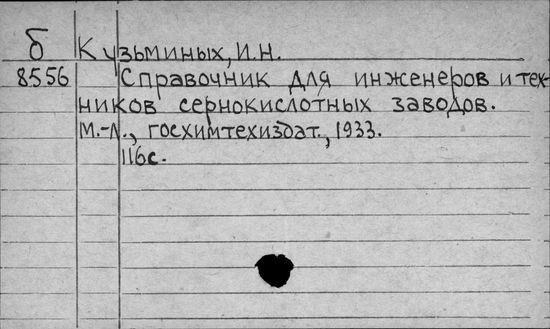 б Кузьминых, И.Н.
8556 Справочник для инженеров и тех-
ников сернокислотных заводов.
М.-Л., госхимтехиздат., 1933.
116с.